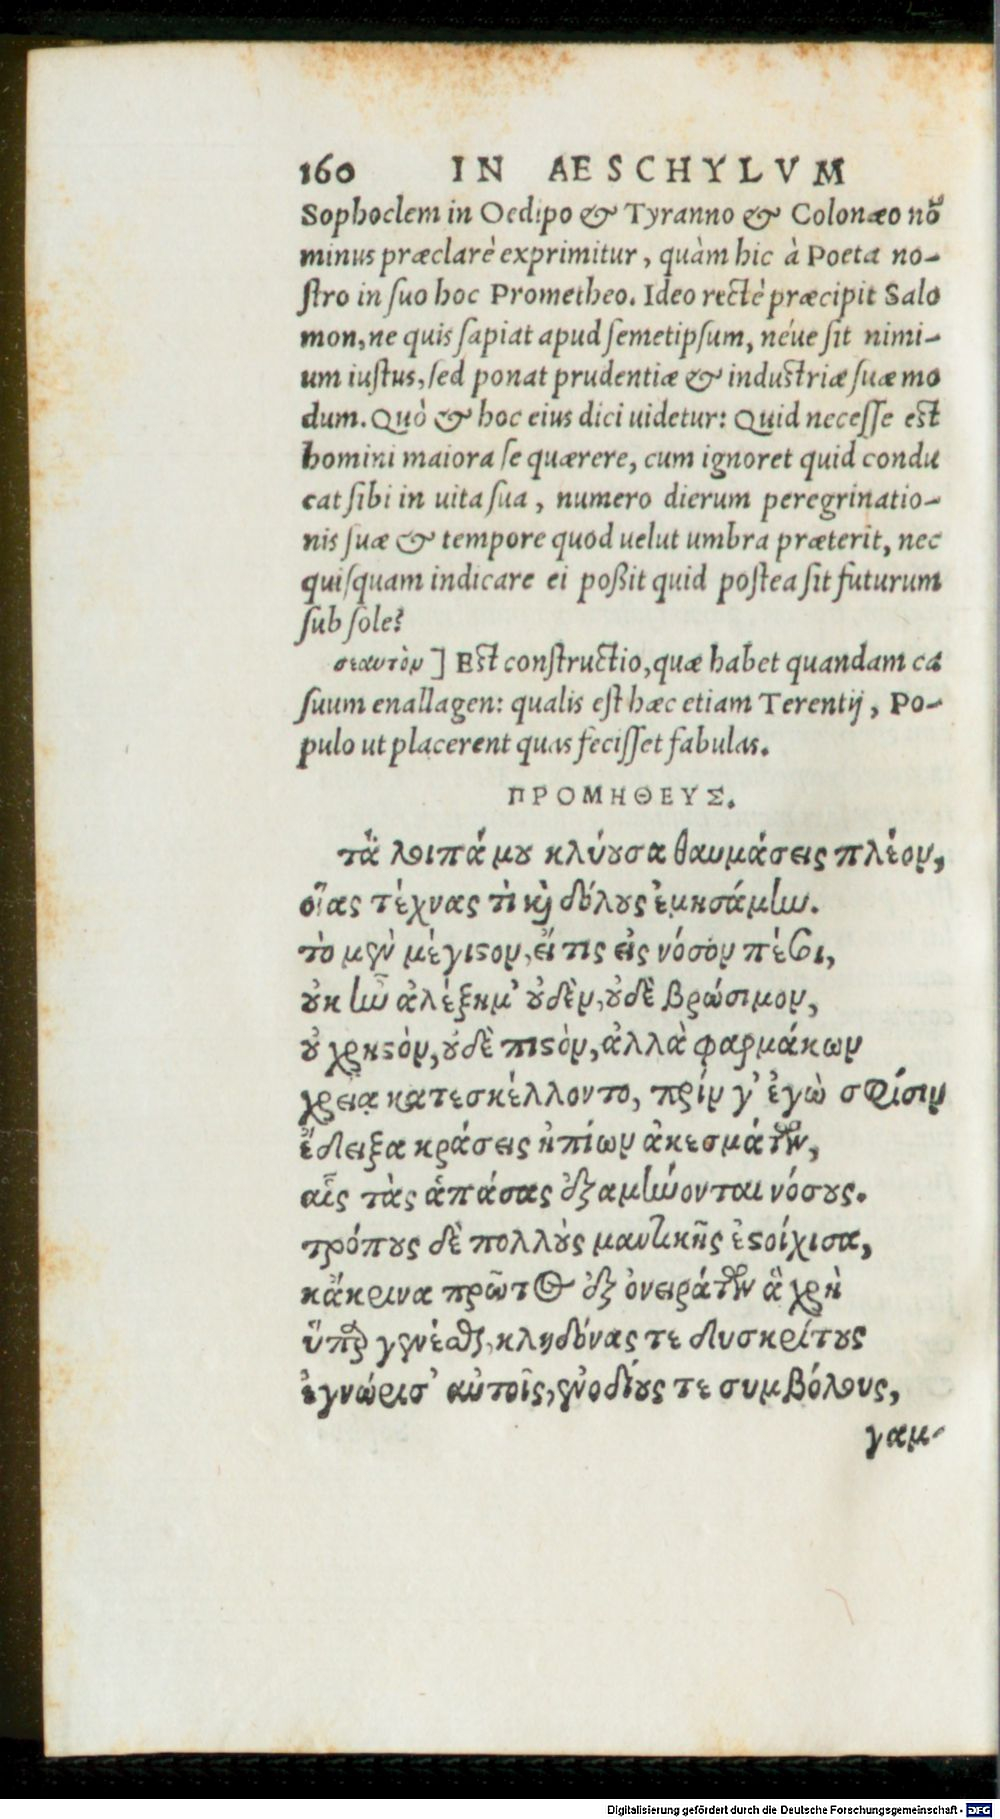 160 IN AESCHYLVM
Sophoclem in Oedipo & Tyranno & Colonæo nō
minus præclarè exprimitur, quàm hic à Poeta no-
stro in suo hoc Prometheo. Ideo rectè præcipit Salo
mon, ne quis sapiat apud semetipsum, néue sit nimi-
um iustus, sed ponat prudentiæ & industriæ suæ mo
dum. Quò & hoc eius dici uidetur: Quid necesse est
homini maiora se quærere, cum ignoret quid condu
cat sibi in uita sua, numero dierum peregrinatio-
nis suæ & tempore quod uelut umbra præterit, nec
quisquam indicare ei poßit quid postea sit futurum
sub sole?
σεαυτὸν] Est constructio, quæ habet quandam ca
suum enallagen: qualis est hæc etiam Terentij, Po-
pulo ut placerent quas fecisset fabulas.
ΠΡΟΜΗΘΕΥΣ.
τἂ λοιπά μου κλύουσα θαυμάσεις πλέον,
οἵας τέχνας τὶ καὶ δόλους ἐμησάμην.
τὸ μὲν μέγιστον, εἴ τις εἰς νόσον πέσοι,
οὐκ ἦν ἀλέξημ' οὐδὲν, οὐδὲ βρώσιμον,
οὐ χρηστὸν, οὐδὲ πιστὸν, ἀλλὰ φαρμάκων
χρείᾳ κατεσκέλλοντο, πρίν γ' ἐγὼ σφίσιν
ἔδειξα κράσεις ἠπίων ἀκεσμάτων,
αἷς τὰς ἁπάσας ἐξαμύνονται νόσους.
τρόπους δὲ πολλοὺς μαντικῆς ἐστοίχισα,
κἄκρινα πρῶτος ἐξ ὀνειράτων ἃ χρὴ
ὕπαρ γενέσθαι, κληδόνας τε δυσκρίτους
ἐγνώρισ' αὐτοῖς, ἐνοδίους τε συμβόλους,
γαμ-
Digitalisierung gefördert durch die Deutsche Forschungsgemeinschaft - DFG